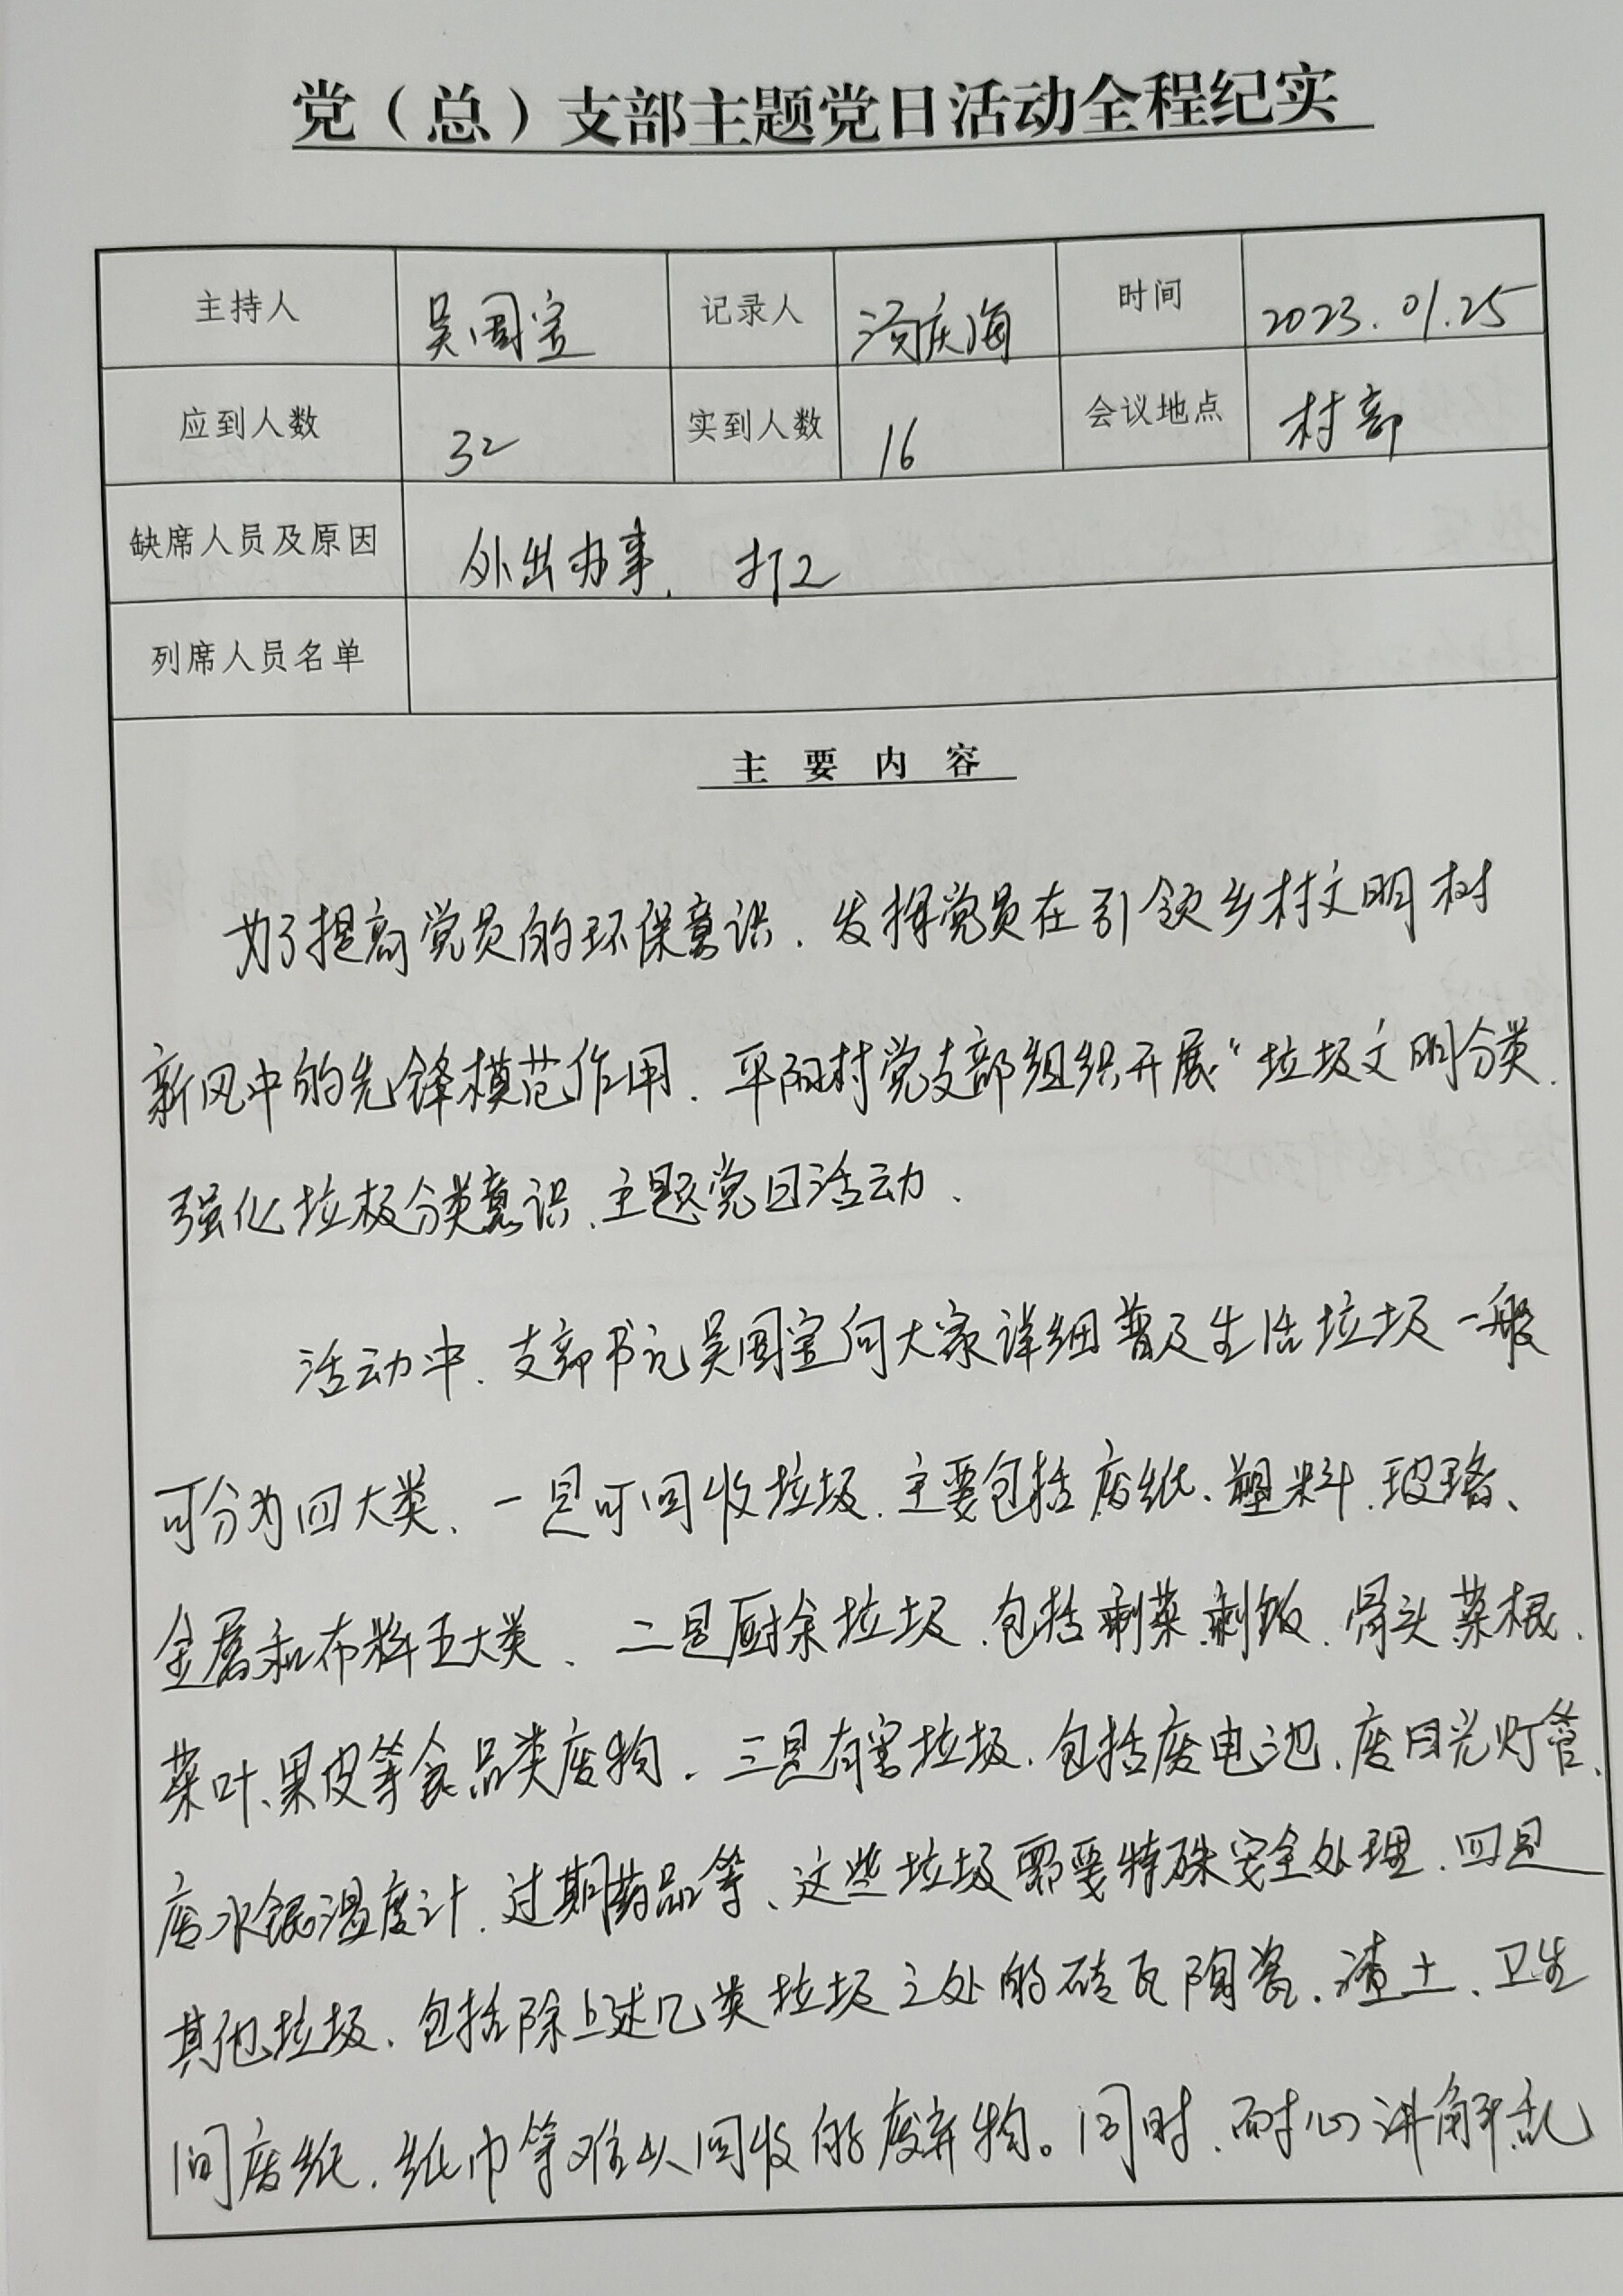 党（总）支部主题党日活动全程纪实
主持人 吴周宝 记录人 汤庆海 时间 2023.01.25
应到人数 32 实到人数 16 会议地点 村部
缺席人员及原因 外出办事、打工
列席人员名单
主要内容
为了提高党员的环保意识、发挥党员在引领乡村文明树
新风中的先锋模范作用、平阳村党支部组织开展“垃圾文明分类、
强化垃圾分类意识、主题党日活动、
活动中、支部书记吴周宝向大家详细普及生活垃圾一般
可分为四大类、一是可回收垃圾、主要包括废纸、塑料、玻璃、
金属和布料五大类、二是厨余垃圾、包括剩菜剩饭、骨头、菜根、
菜叶、果皮等食品类废物、三是有害垃圾、包括废电池、废日光灯管、
废水银温度计、过期药品等、这些垃圾需要特殊安全处理、四是
其他垃圾、包括除上述几类垃圾之处的砖瓦陶瓷、渣土、卫生
间废纸、纸巾等难以回收的废弃物。同时、耐心讲解乱